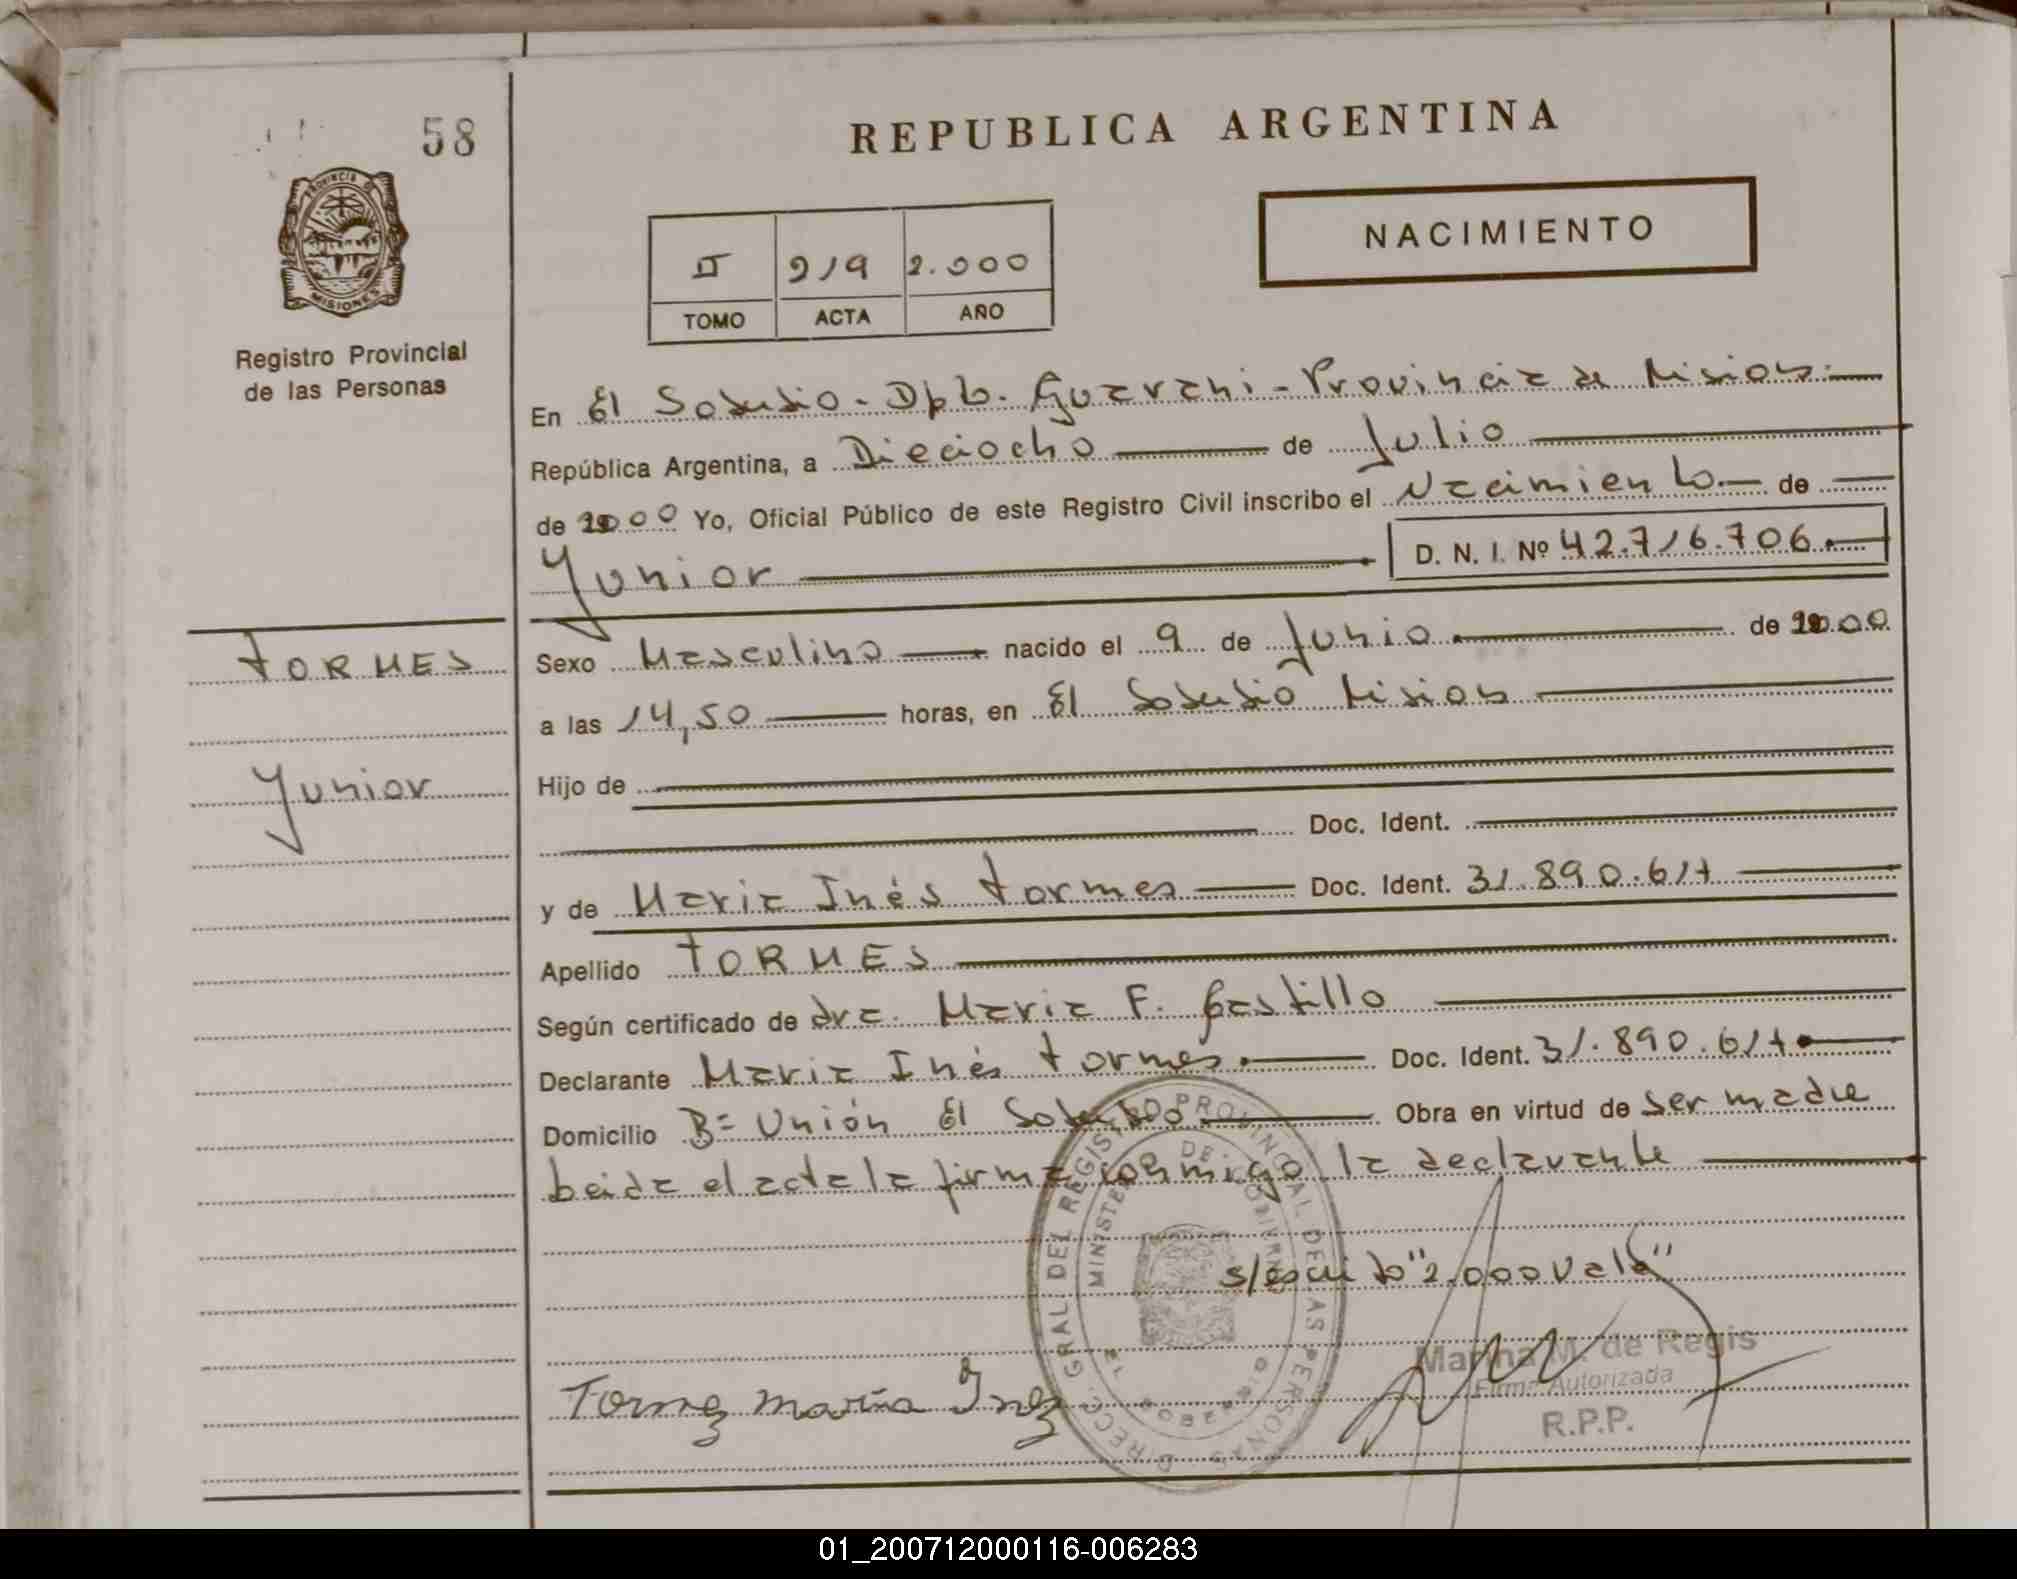 58
REPUBLICA ARGENTINA
NACIMIENTO
PROVINCIA D
MISIONES
Registro Provincial
de las Personas
II 219 2.000
TOMO ACTA AÑO
En El Soberbio - Dpto. Guarani - Provincia de Misiones.
República Argentina, a Dieciocho de Julio
de 2000 Yo, Oficial Público de este Registro Civil inscribo el Nacimiento. de
Yunior D. N. I. Nº 42.716.706.
TORMES
Sexo Masculino nacido el 9 de Junio de 2000
a las 14,50 horas, en El Soberbio Misiones
Yunior
Hijo de
Doc. Ident.
y de Maria Inés Tormes Doc. Ident. 31.890.617
Apellido TORMES
Según certificado de dra. Maria F. Castillo
Declarante Maria Inés Tormes. Doc. Ident. 31.890.617
Domicilio Bº Unión El Soberbio. Obra en virtud de ser madre
Leida el acta la firma conmigo la declarante
s/escrito "2.000 Vale"
Tormez maría Inez
Martha M. de Regis
Firma Autorizada
R.P.P.
DIRECC. GRAL. DEL REGISTRO PROVINCIAL DE LAS PERSONAS
MINISTERIO DE GOBIERNO
EL SOBERBIO
01_200712000116-006283